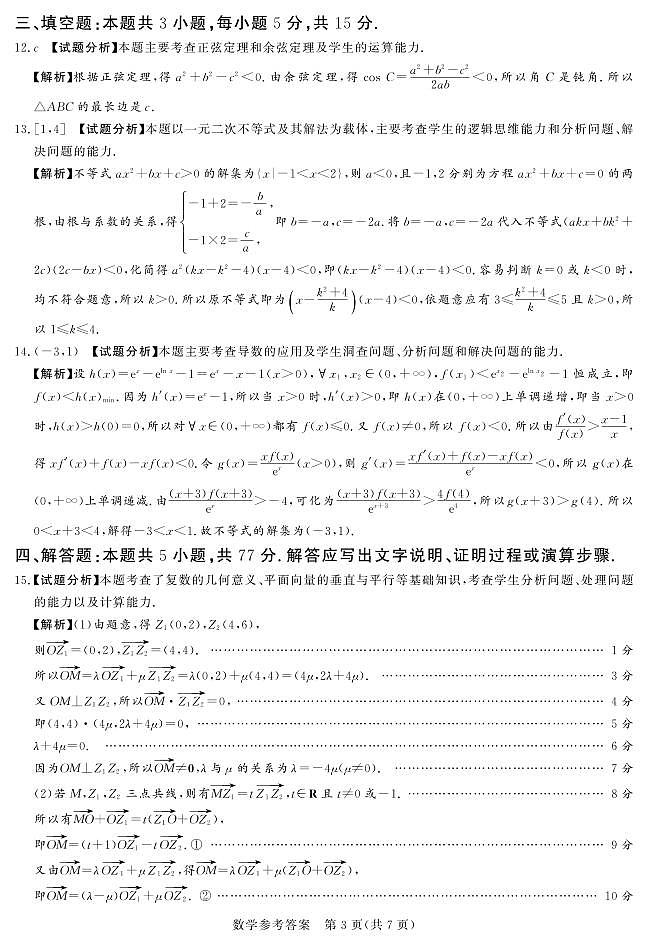 三、填空题:本题共 3 小题,每小题 5 分,共 15 分.
12. c 【试题分析】本题主要考查正弦定理和余弦定理及学生的运算能力.
【解析】根据正弦定理,得 a²+b²-c²<0. 由余弦定理,得 cos C=(a²+b²-c²)/(2ab)<0,所以角 C 是钝角. 所以
△ABC 的最长边是 c.
13. [1,4] 【试题分析】本题以一元二次不等式及其解法为载体,主要考查学生的逻辑思维能力和分析问题、解
决问题的能力.
【解析】不等式 ax²+bx+c>0 的解集为{x|-1<x<2},则 a<0,且-1,2 分别为方程 ax²+bx+c=0 的两
根,由根与系数的关系,得{-1+2=-b/a, -1×2=c/a, 即 b=-a,c=-2a. 将 b=-a,c=-2a 代入不等式(akx+bk²+
2c)(2c-bx)<0,化简得 a²(kx-k²-4)(x-4)<0,即(kx-k²-4)(x-4)<0. 容易判断 k=0 或 k<0 时,
均不符合题意,所以 k>0. 所以原不等式即为(x-(k²+4)/k)(x-4)<0,依题意应有 3≤(k²+4)/k≤5 且 k>0,所
以 1≤k≤4.
14. (-3,1) 【试题分析】本题主要考查导数的应用及学生洞查问题、分析问题和解决问题的能力.
【解析】设 h(x)=eˣ-e^(ln x)-1=eˣ-x-1(x>0),∀x₁,x₂∈(0,+∞),f(x₁)<e^(x₂)-e^(ln x₂)-1 恒成立,即
f(x)<h(x)min. 因为 h′(x)=eˣ-1,所以当 x>0 时,h′(x)>0,即 h(x)在(0,+∞)上单调递增,即当 x>0
时,h(x)>h(0)=0,所以对∀x∈(0,+∞)都有 f(x)≤0. 又 f(x)≠0,所以 f(x)<0. 所以由 f′(x)/f(x)>(x-1)/x,
得 xf′(x)+f(x)-xf(x)<0. 令 g(x)=xf(x)/eˣ(x>0),则 g′(x)=(xf′(x)+f(x)-xf(x))/eˣ<0,所以 g(x)在
(0,+∞)上单调递减. 由 (x+3)f(x+3)/eˣ>-4,可化为 (x+3)f(x+3)/e^(x+3)>4f(4)/e⁴,所以g(x+3)>g(4). 所以
0<x+3<4,解得-3<x<1. 故不等式的解集为(-3,1).
四、解答题:本题共 5 小题,共 77 分. 解答应写出文字说明、证明过程或演算步骤.
15.【试题分析】本题考查了复数的几何意义、平面向量的垂直与平行等基础知识,考查学生分析问题、处理问题
的能力以及计算能力.
【解析】(1)由题意,得 Z₁(0,2),Z₂(4,6),
则OZ₁→=(0,2),Z₁Z₂→=(4,4). …… 1 分
所以OM→=λOZ₁→+μZ₁Z₂→=λ(0,2)+μ(4,4)=(4μ,2λ+4μ). …… 3 分
又 OM⊥Z₁Z₂,所以OM→·Z₁Z₂→=0, …… 4 分
即(4,4)·(4μ,2λ+4μ)=0, …… 5 分
λ+4μ=0. …… 6 分
因为OM⊥Z₁Z₂,所以OM→≠0,λ 与 μ 的关系为 λ=-4μ(μ≠0). …… 7 分
(2)若 M,Z₁,Z₂ 三点共线,则有MZ₁→=tZ₁Z₂→,t∈R 且 t≠0 或-1. …… 8 分
所以有MO→+OZ₁→=t(Z₁O→+OZ₂→),
即OM→=(t+1)OZ₁→-tOZ₂→. ① …… 9 分
又由OM→=λOZ₁→+μZ₁Z₂→,得OM→=λOZ₁→+μ(Z₁O→+OZ₂→),
即OM→=(λ-μ)OZ₁→+μOZ₂→. ② …… 10 分
数学参考答案 第 3 页(共 7 页)